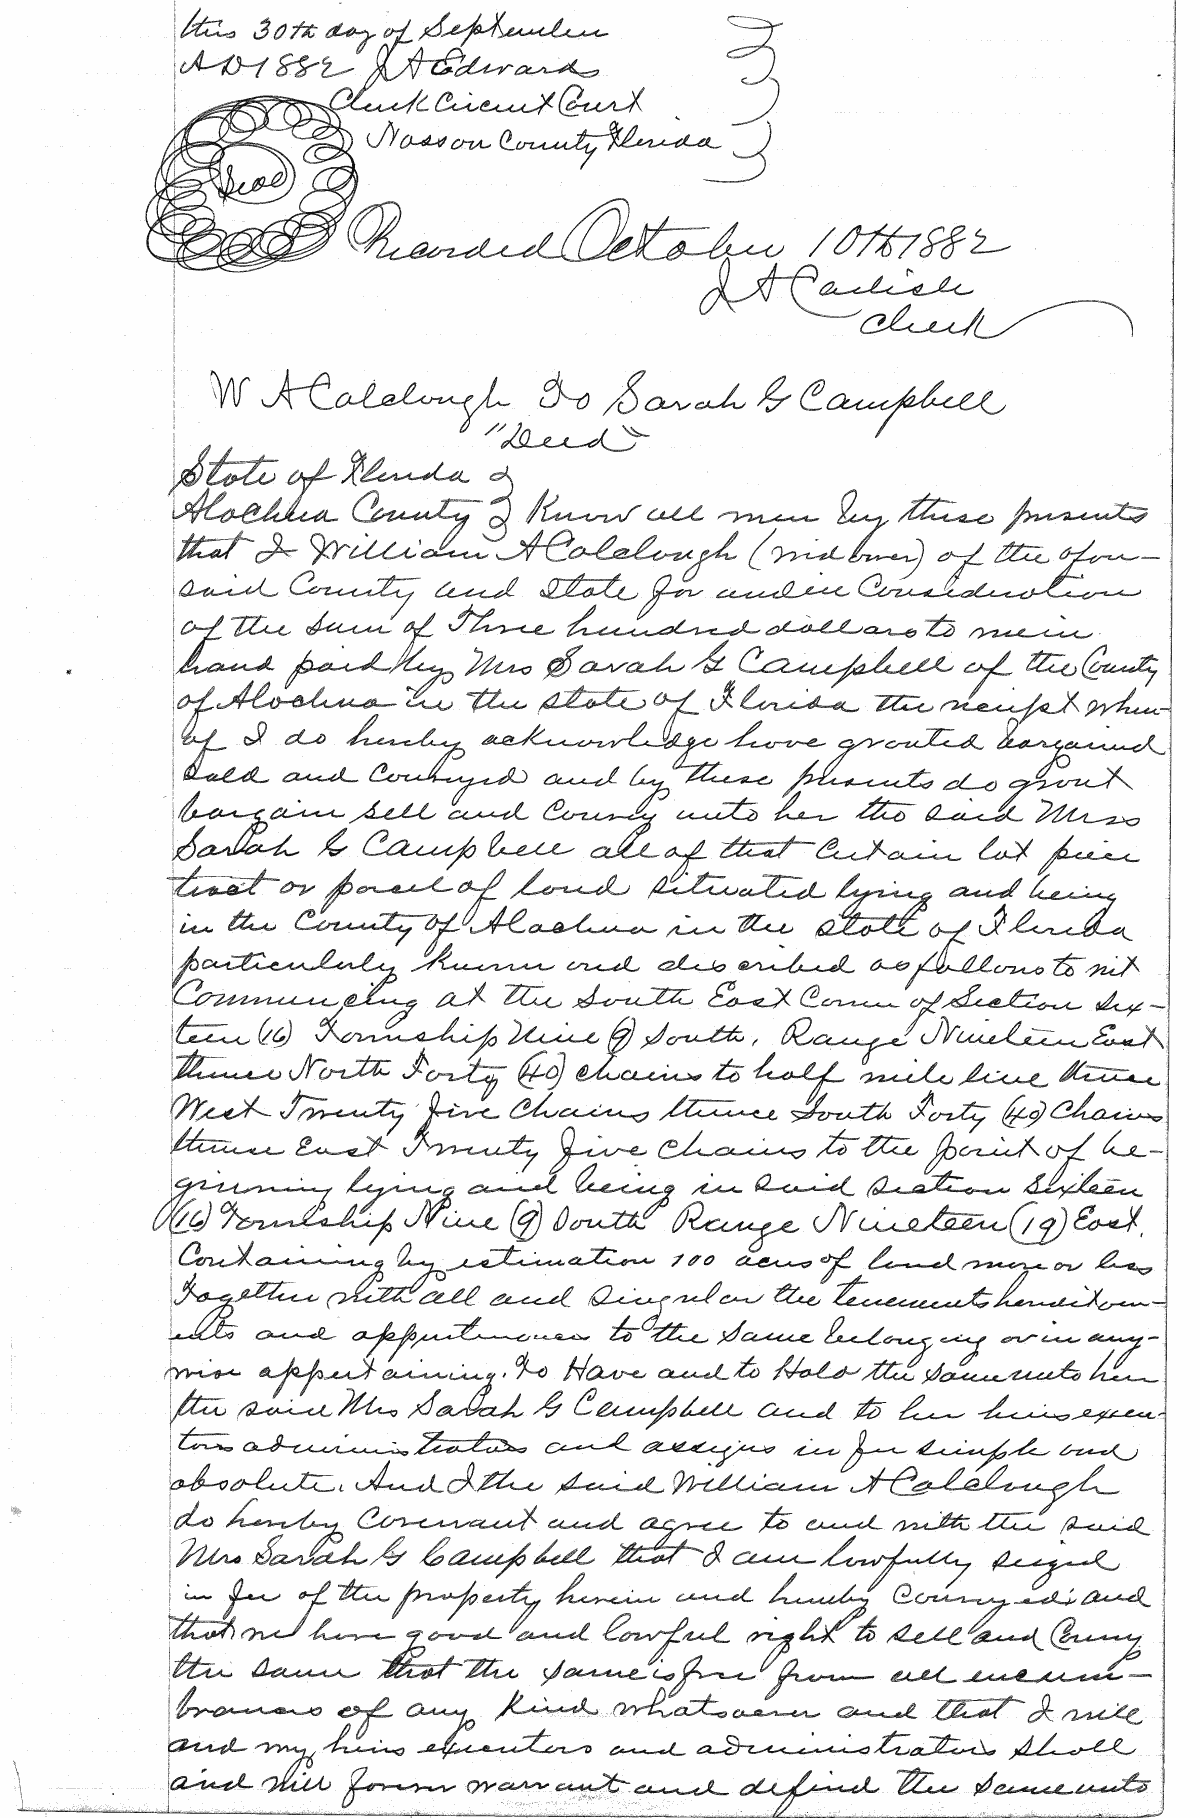 this 30th day of September
A D 1882 J A Edwards
Clerk Circuit Court
Nassau County Florida
Seal
Recorded October 10th 1882
J A Carlisle
Clerk
W A Colclough To Sarah G Campbell
"Deed"
State of Florida
Alachua County Know all men by these presents
that I William A Colclough (widower) of the afore-
said County and State for and in Consideration
of the sum of Three hundred dollars to me in
hand paid by Mrs Sarah G Campbell of the County
of Alachua in the state of Florida the receipt where-
of I do hereby acknowledge have granted bargained
sold and conveyed and by these presents do grant
bargain sell and convey unto her the said Mrss
Sarah G Campbell all of that certain lot piece
tract or parcel of land situated lying and being
in the County of Alachua in the state of Florida
particularly known and described as follows to wit
Commencing at the South East Corner of Section Six-
teen (16) Township Nine (9) South, Range Nineteen East
thence North Forty (40) chains to half mile line thence
West Twenty five Chains thence South Forty (40) Chains
thence East Twenty five Chains to the point of be-
ginning lying and being in said section sixteen
(16) Township Nine (9) South Range Nineteen (19) East.
Containing by estimation 100 acres of land more or less
Together with all and singular the tenements heriditam-
ents and appurtenances to the same belonging or in any-
wise appertaining. To Have and to Hold the same unto her
the said Mrs Sarah G Campbell and to her heirs execu-
tors administrators and assigns in fee simple and
absolute. And I the said William A Colclough
do hereby Covenant and agree to and with the said
Mrs Sarah G Campbell that I am lawfully seized
in fee of the property herein and hereby Conveyed; and
that we have good and lawful right to sell and Convey
the same that the same is free from all encum-
brances of any kind whatsoever and that I will
and my heirs executors and administrators shall
and will forever warrant and defend the same unto